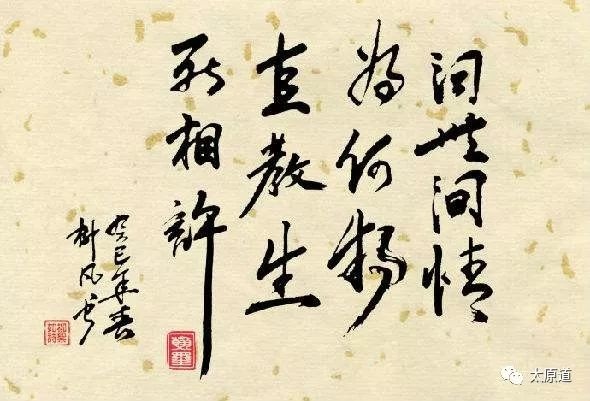 问世间情
为何物
直教生
死相許
癸巳年春
太原道